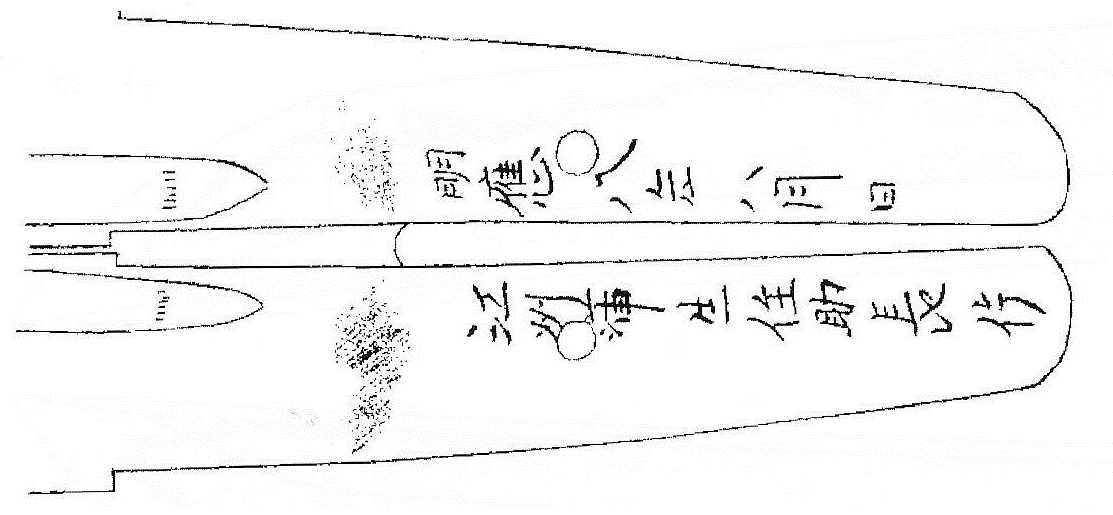 明應八年八月日
江州蒲生住助長作